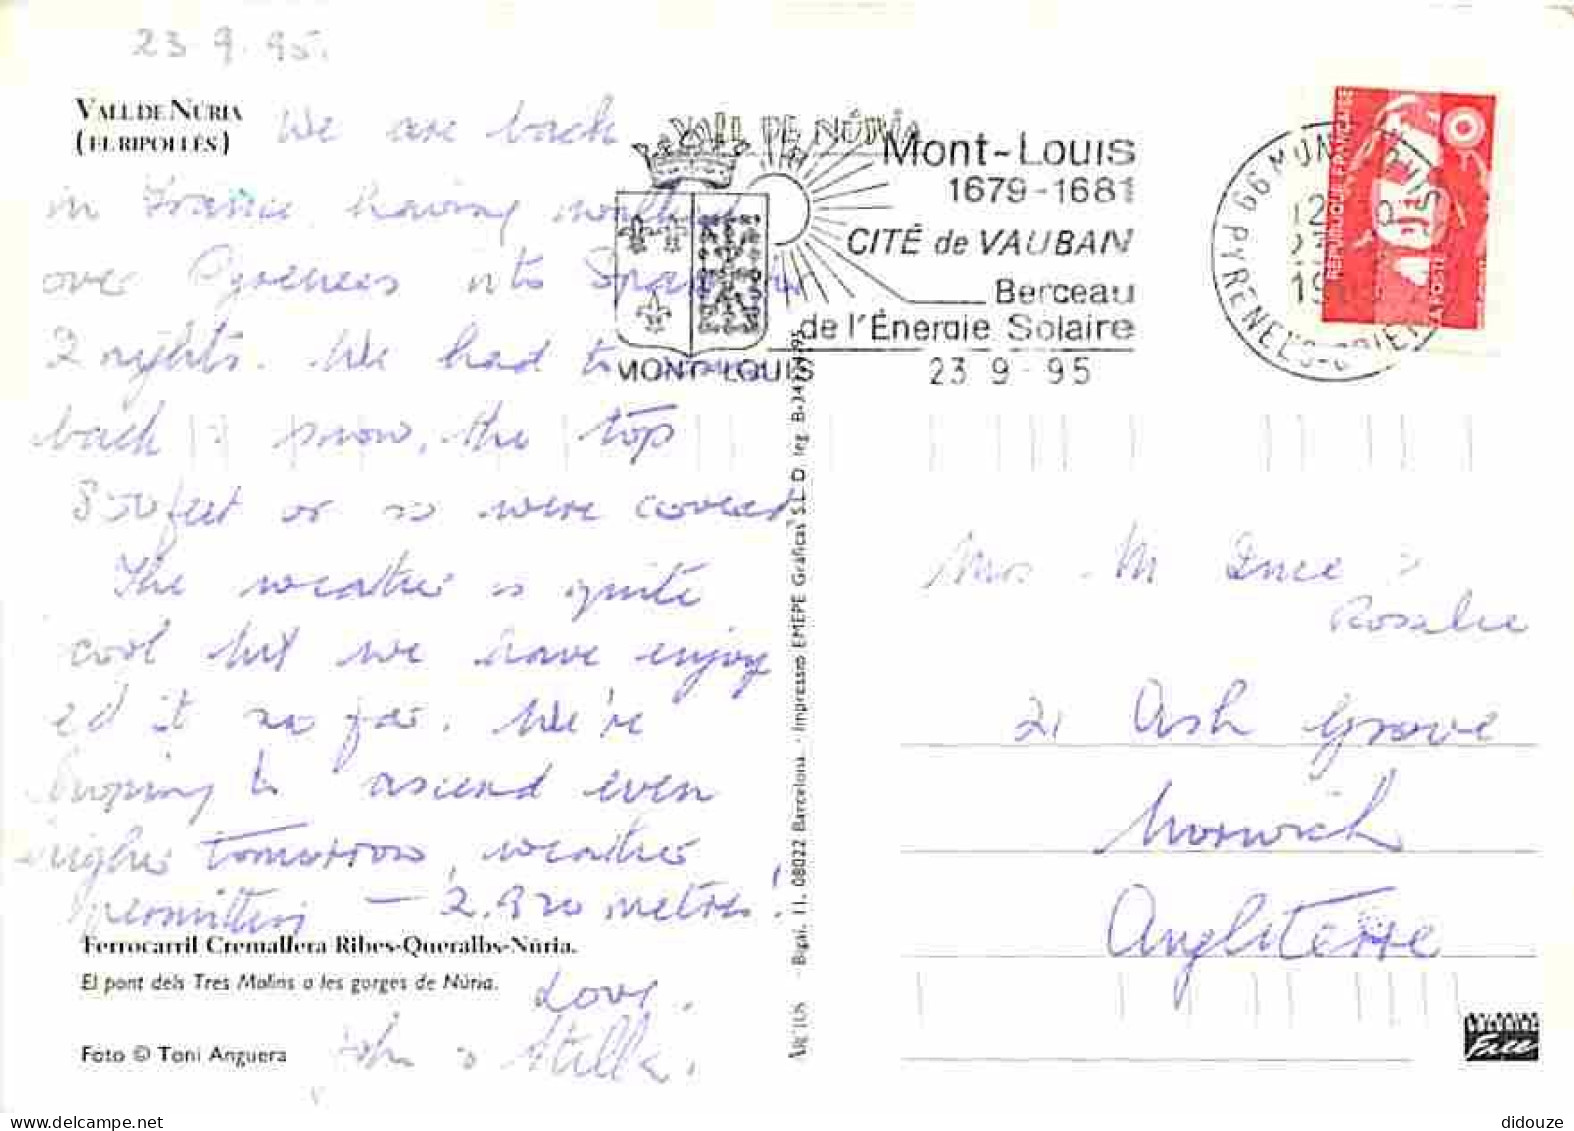 23.9.95.
VALL DE NÚRIA
(EL RIPOLLÈS)
We are back
in France, having walked
over Pyrenees into Spain for
2 nights. We had to come
back snow, the top
500 feet or so were covered
The weather is quite
cool but we have enjoy
ed it so far. We're
hoping to ascend even
higher tomorrow, weather
permitting — 2,920 metres!
Ferrocarril Cremallera Ribes-Queralbs-Núria.
El pont dels Tres Molins a les gorges de Núria.
Love,
John & Stella.
Foto © Toni Anguera
VALL DE NÚRIA
MONT-LOUIS
Mont-Louis
1679-1681
CITÉ de VAUBAN
Berceau
de l'Énergie Solaire
23 9 - 95
66 MONT LOUIS
PYRENEES-ORIEN
RÉPUBLIQUE FRANÇAISE
LA POSTE
Bigai, 11, 08022 Barcelona - Impressió EMEPE Gráficas S.L. D. leg. B-
Mrs. M
Rosalie
21 Ash Grove
Norwich
Angleterre
Free
didouze